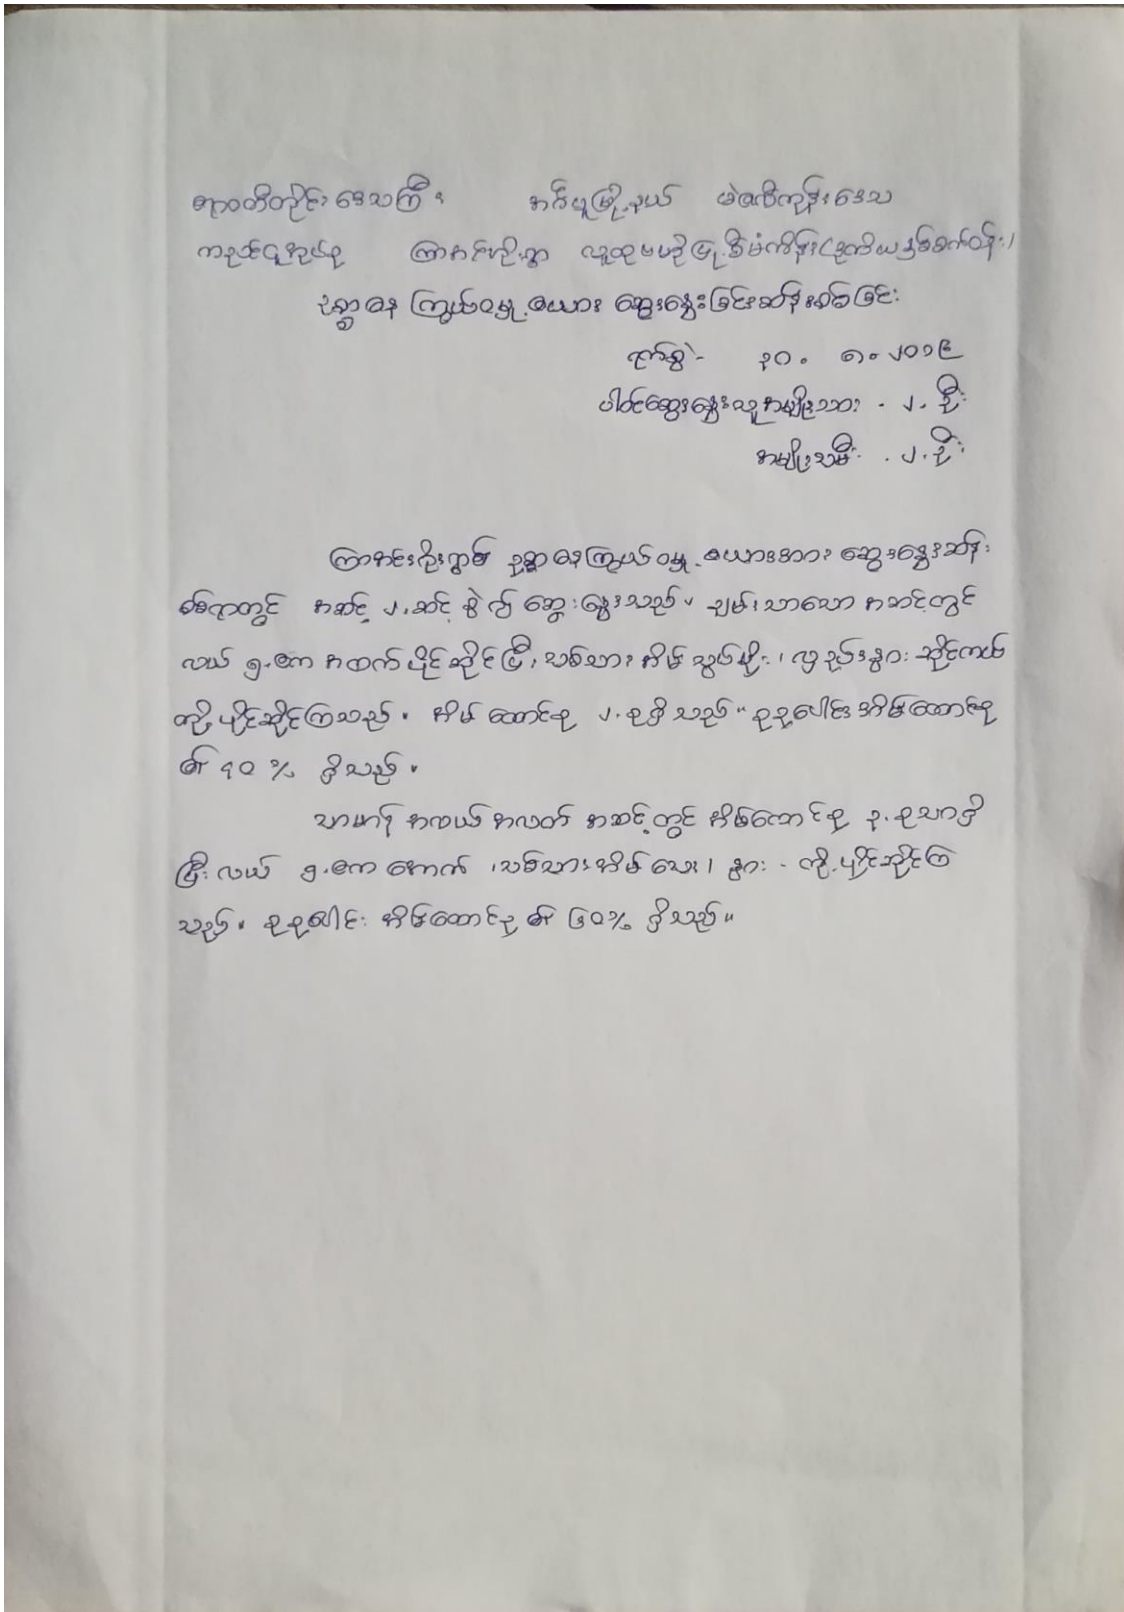 ဧရာဝတီတိုင်းဒေသကြီး အင်္ဂပူမြို့နယ် မဲဇလီကုန်းဒေသ
ကညင်ငူအုပ်စု ကြာအင်းဟိုးရွာ လူထုဗဟိုပြုစီမံကိန်း (ဒုတိယနှစ်စက်ဝန်း)
ဥစ္စာဓနကြွယ်ဝမှု ဇယား ဆွေးနွေးခြင်းဆန်းစစ်ခြင်း
ရက်စွဲ- ၃၀. ၁. ၂၀၁၉
ပါဝင်ဆွေးနွေးသူအမျိုးသား - ၂.ဦး
အမျိုးသမီး - ၂.ဦး
ဥစ္စာဓနကြွယ်ဝမှုဇယားအား ဆွေးနွေးဆန်း
စစ်ရာတွင် အဆင့် ၂.ဆင့် ခွဲ၍ ဆွေးနွေးသည်။ ချမ်းသာသော အဆင့်တွင်
လယ် ၅.ဧက အထက်ပိုင်ဆိုင်ပြီး သစ်သားအိမ်သွပ်မိုး၊ လှည်းနွား ဆိုင်ကယ်
တို့ပိုင်ဆိုင်ကြသည်။ အိမ်ထောင်စု ၂.စုရှိသည်။ စုစုပေါင်းအိမ်ထောင်စု
၏ ၄၀ % ရှိသည်။
သာမာန် အလယ်အလတ် အဆင့်တွင် အိမ်ထောင်စု ၃.စုသာရှိ
ပြီး လယ် ၅.ဧက အောက် ၊ သစ်သားအိမ်သေး၊ နွား - တို့ ပိုင်ဆိုင်ကြ
သည်။ စုစုပေါင်း အိမ်ထောင်စု၏ ၆၀% ရှိသည်။